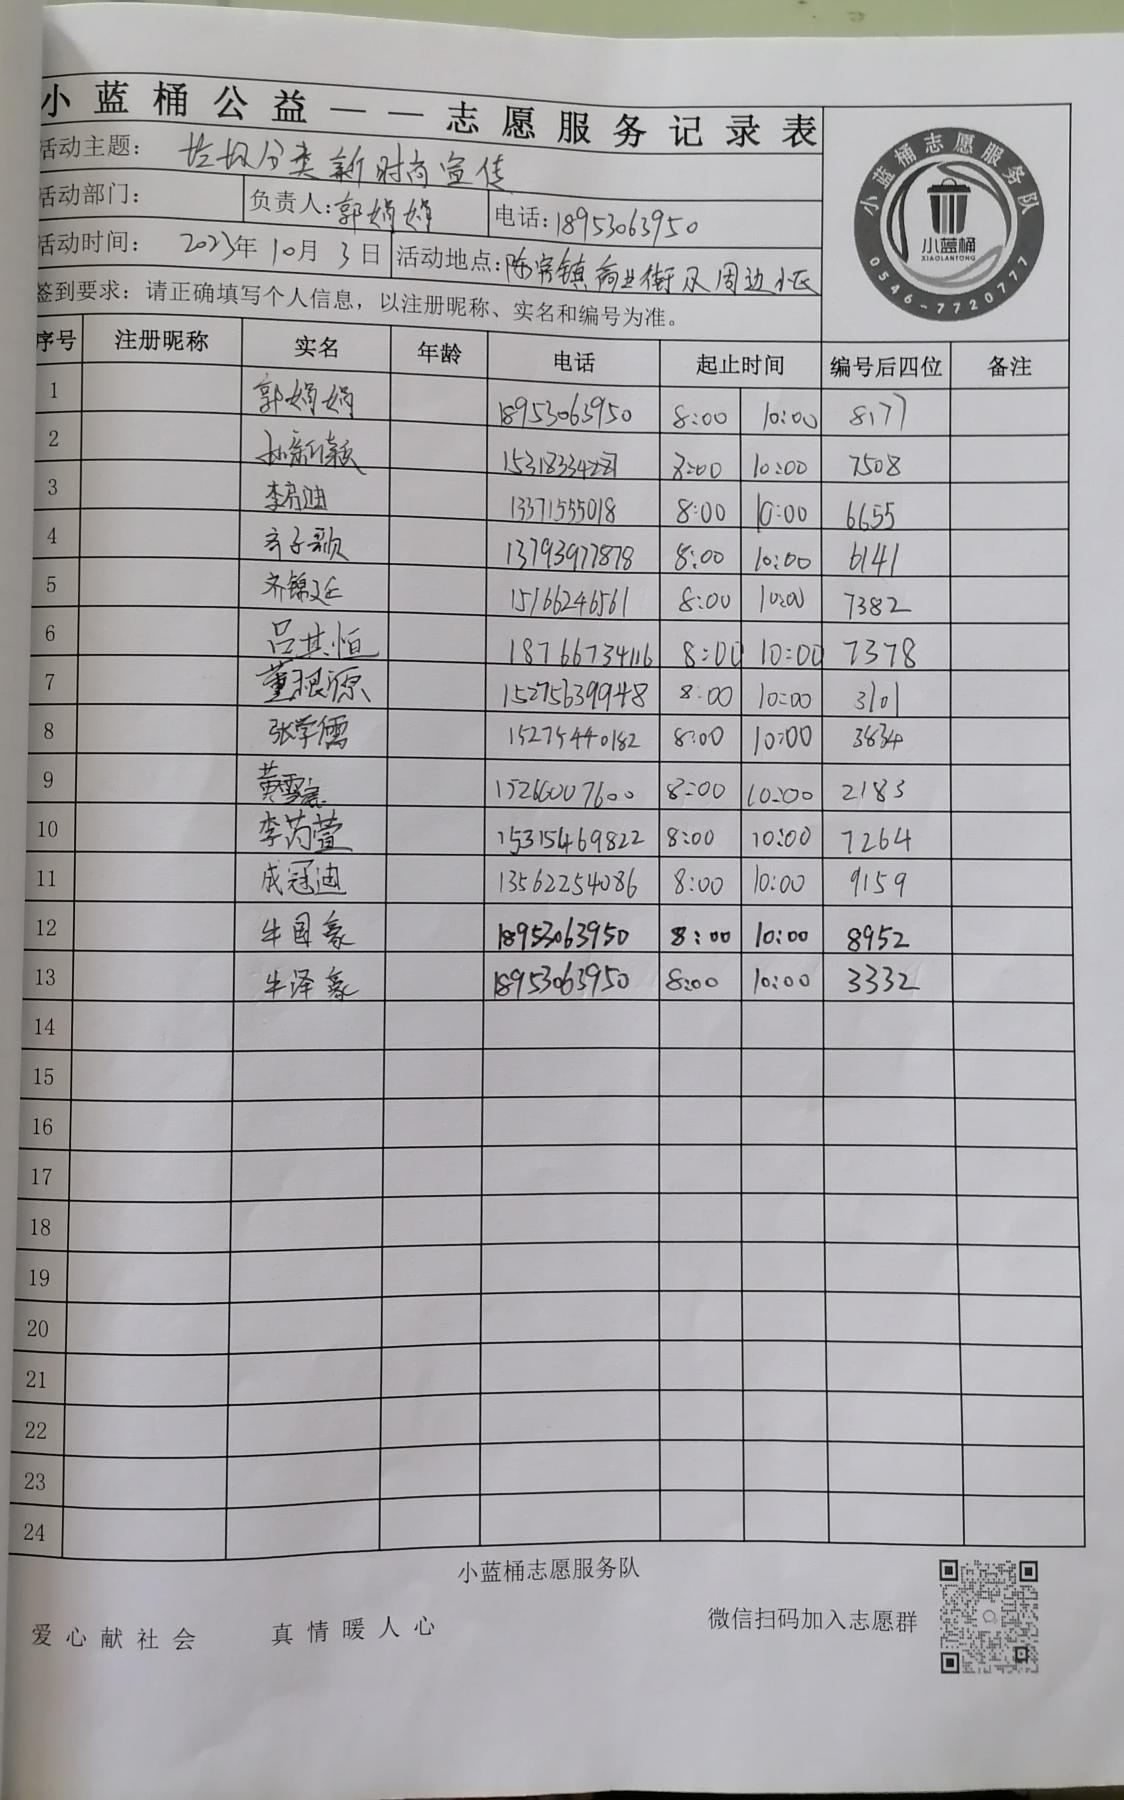 小蓝桶公益——志愿服务记录表
活动主题：垃圾分类新时尚宣传
活动部门： 负责人：郭娟娟 电话：18953063950
活动时间：2023年10月3日 活动地点：陈官镇商业街及周边小区
签到要求：请正确填写个人信息，以注册昵称、实名和编号为准。
小蓝桶志愿服务队
小蓝桶
XIAOLANTONG
0546-7720777
序号 注册昵称 实名 年龄 电话 起止时间 编号后四位 备注
1 郭娟娟 18953063950 8:00 10:00 8177
2 孙新颖 8:00 10:00 7508
3 13371555018 8:00 10:00 6655
4 齐子歌 13793977878 8:00 10:00 6141
5 齐锦廷 15166246561 8:00 10:00 7382
6 吕其恒 18766734116 8:00 10:00 7378
7 董琅源 15275639948 8:00 10:00 3101
8 张学儒 15275440182 8:00 10:00 3834
9 15266007600 8:00 10:00 2183
10 李芮萱 15315469822 8:00 10:00 7264
11 成冠迪 13562254086 8:00 10:00 9159
12 牛国豪 18953063950 8:00 10:00 8952
13 牛泽豪 18953063950 8:00 10:00 3332
14
15
16
17
18
19
20
21
22
23
24
小蓝桶志愿服务队
爱心献社会 真情暖人心 微信扫码加入志愿群